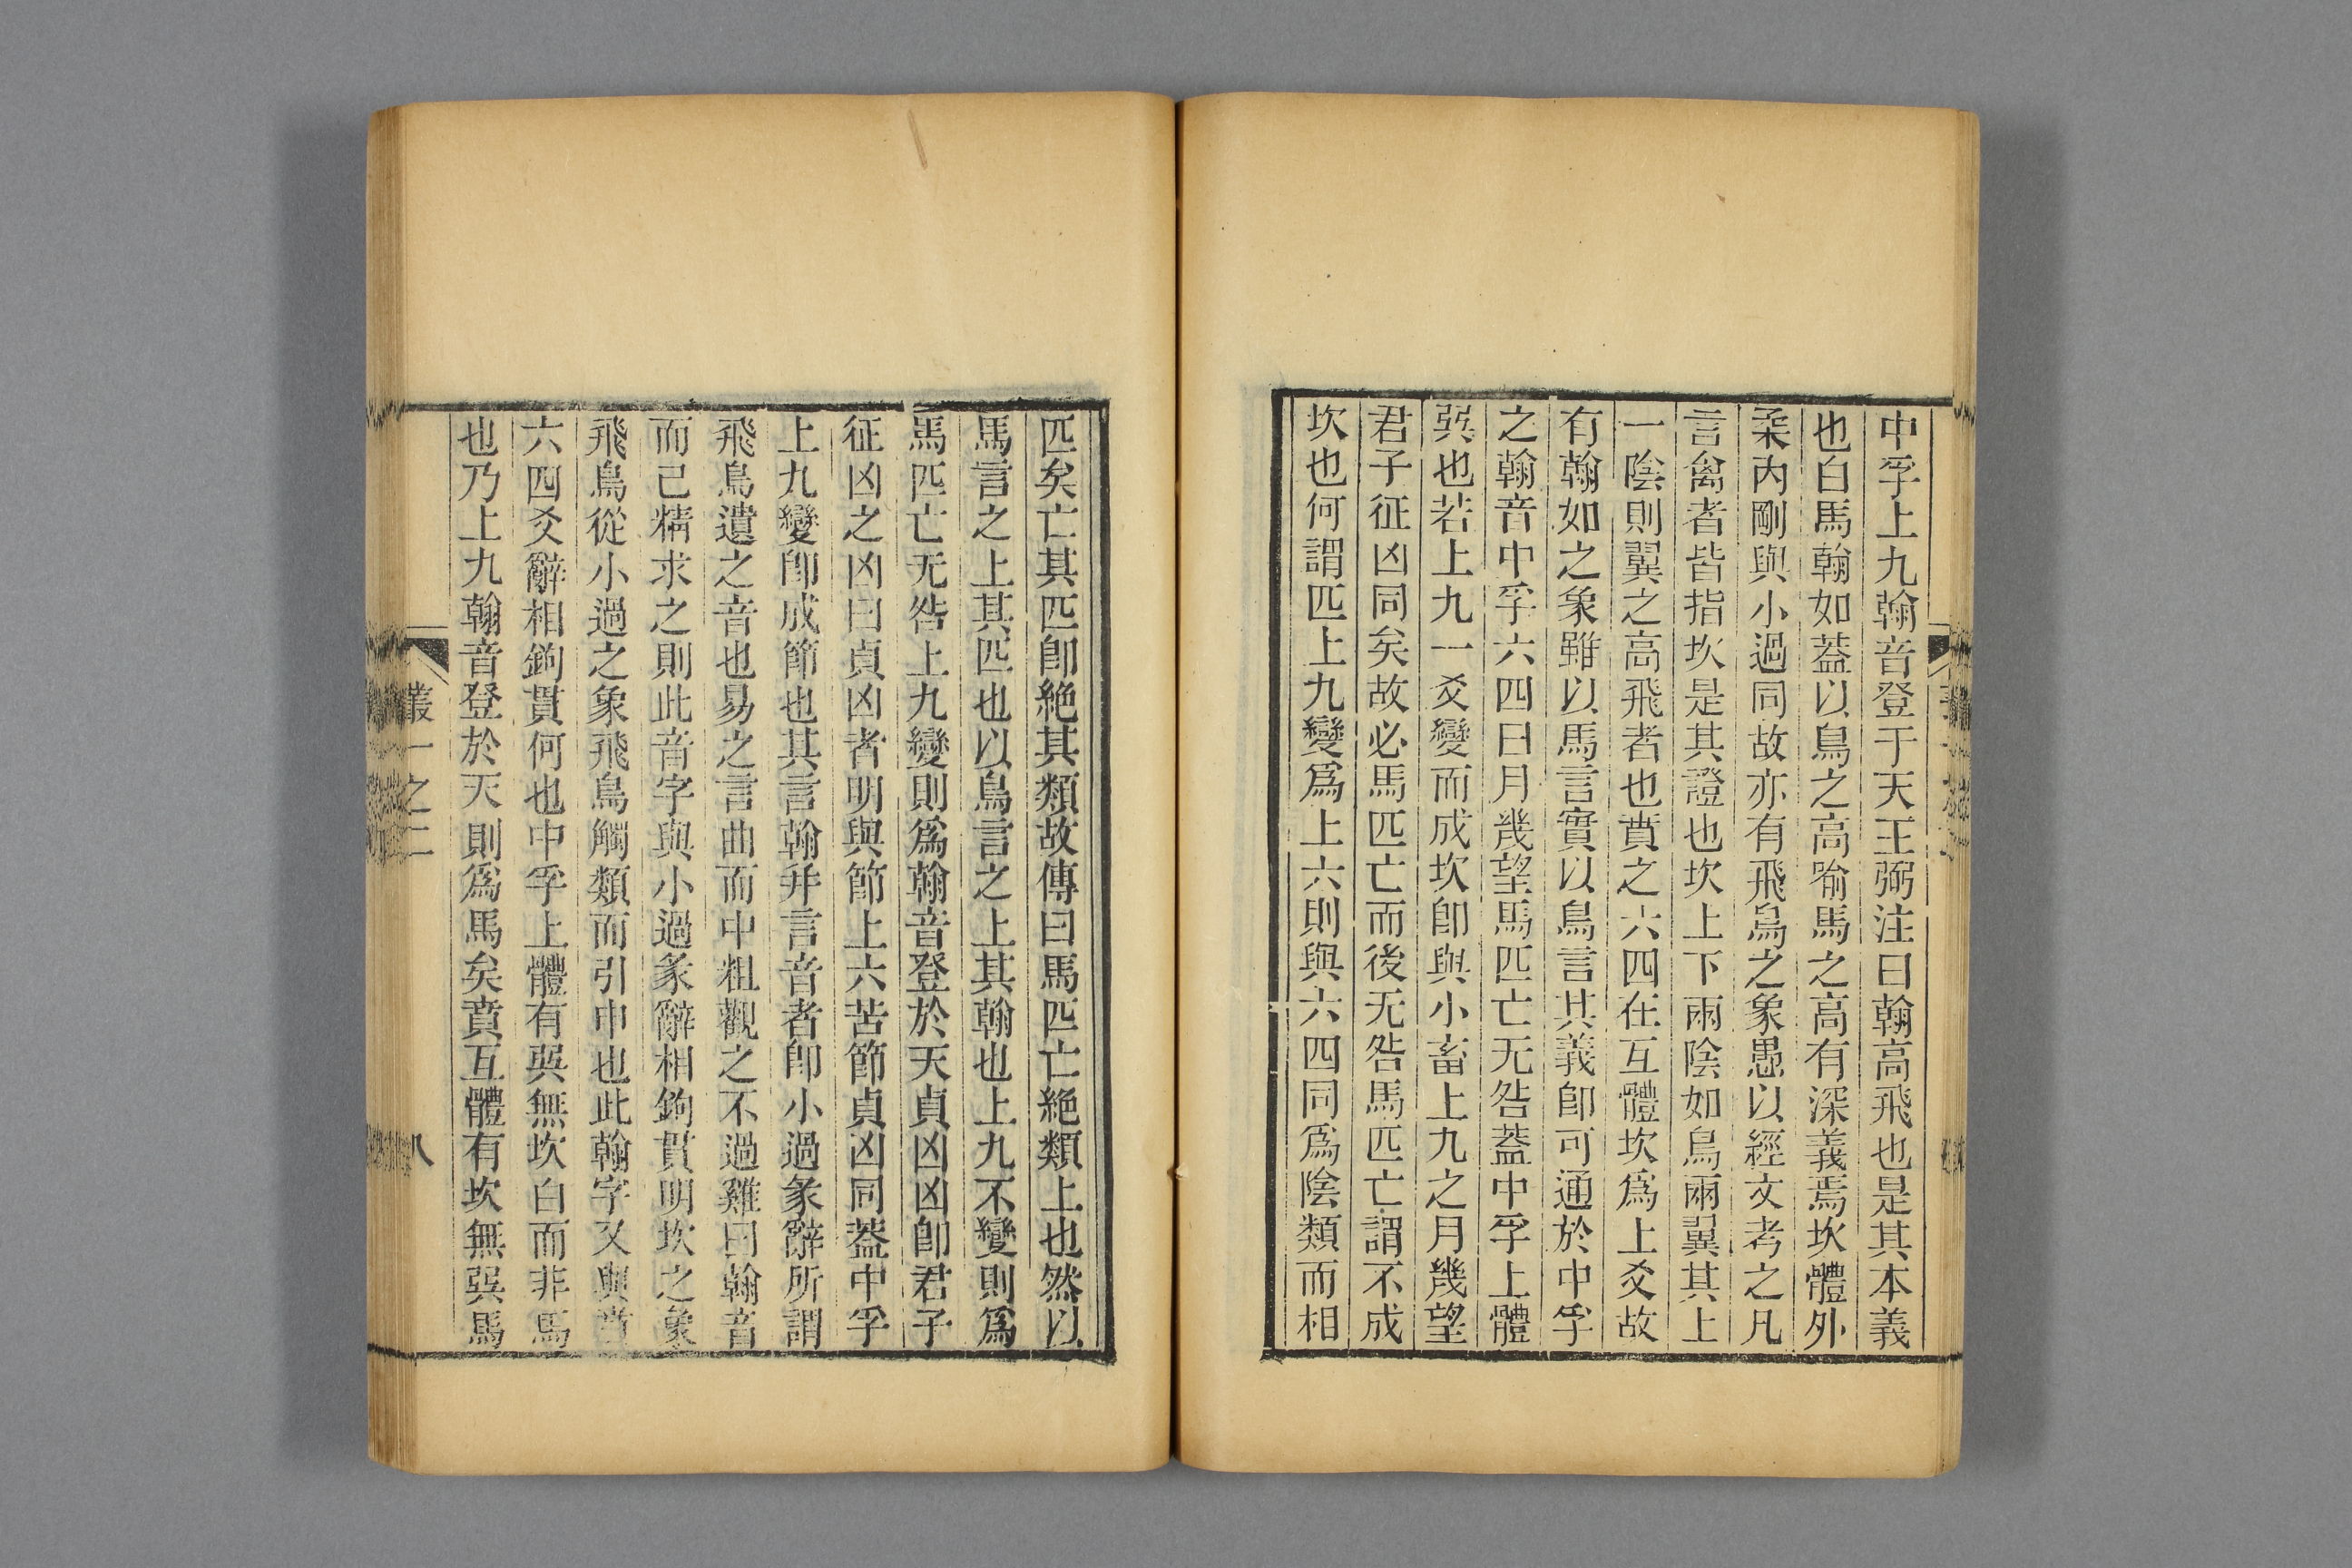 中孚上九翰音登于天王弼注曰翰高飛也是其本義
也白馬翰如蓋以鳥之高喻馬之高有深義焉坎體外
柔內剛與小過同故亦有飛鳥之象愚以經文考之凡
言禽者皆指坎是其證也坎上下兩陰如鳥兩翼其上
一陰則翼之高飛者也賁之六四在互體坎爲上爻故
有翰如之象雖以馬言實以鳥言其義卽可通於中孚
之翰音中孚六四曰月幾望馬匹亡无咎蓋中孚上體
巽也若上九一爻變而成坎卽與小畜上九之月幾望
君子征凶同矣故必馬匹亡而後无咎馬匹亡謂不成
坎也何謂匹上九變爲上六則與六四同爲陰類而相
匹矣亡其匹卽絶其類故傳曰馬匹亡絶類上也然以
馬言之上其匹也以鳥言之上其翰也上九不變則爲
馬匹亡无咎上九變則爲翰音登於天貞凶凶卽君子
征凶之凶曰貞凶者明與節上六苦節貞凶同蓋中孚
上九變卽成節也其言翰幷言音者卽小過彖辭所謂
飛鳥遺之音也易之言曲而中粗觀之不過雞曰翰音
而已精求之則此音字與小過彖辭相鉤貫明坎之象
飛鳥從小過之象飛鳥觸類而引申也此翰字又與賁
六四爻辭相鉤貫何也中孚上體有巽無坎白而非馬
也乃上九翰音登於天則爲馬矣賁互體有坎無巽馬
叢一之二
八